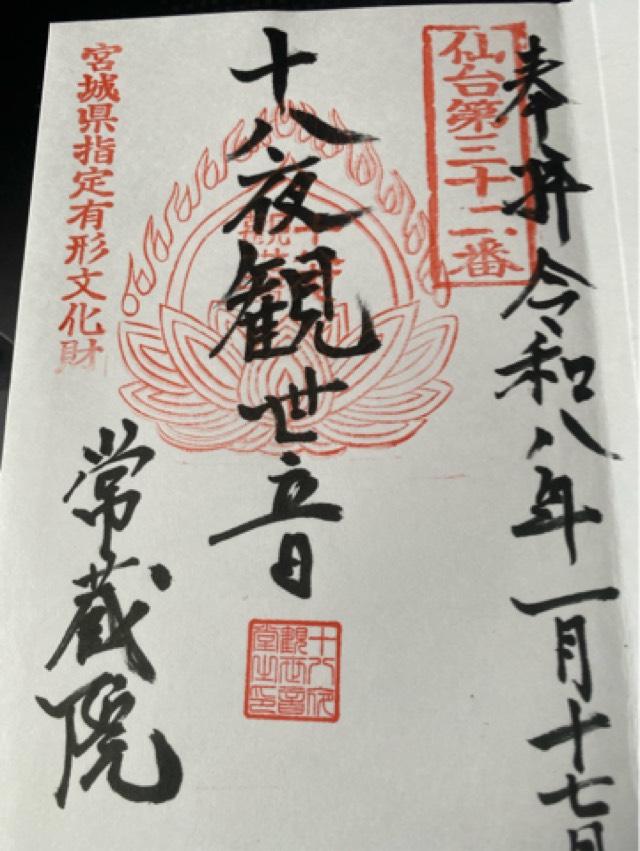 奉拝 令和八年一月十七日
仙台第三十二番
十八夜観世音
十八夜観世音堂之印
宮城県指定有形文化財
常蔵院